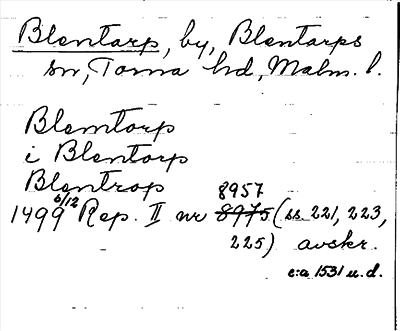 Blentarp, by, Blentarps
sn, Torna hd, Malm. l.
Blemtorp
i Blentorp
Blentrop
1499 6/12 Rep. II nr 8975 8957 (ss. 221, 223,
225) avskr.
c:a 1531 u. d.